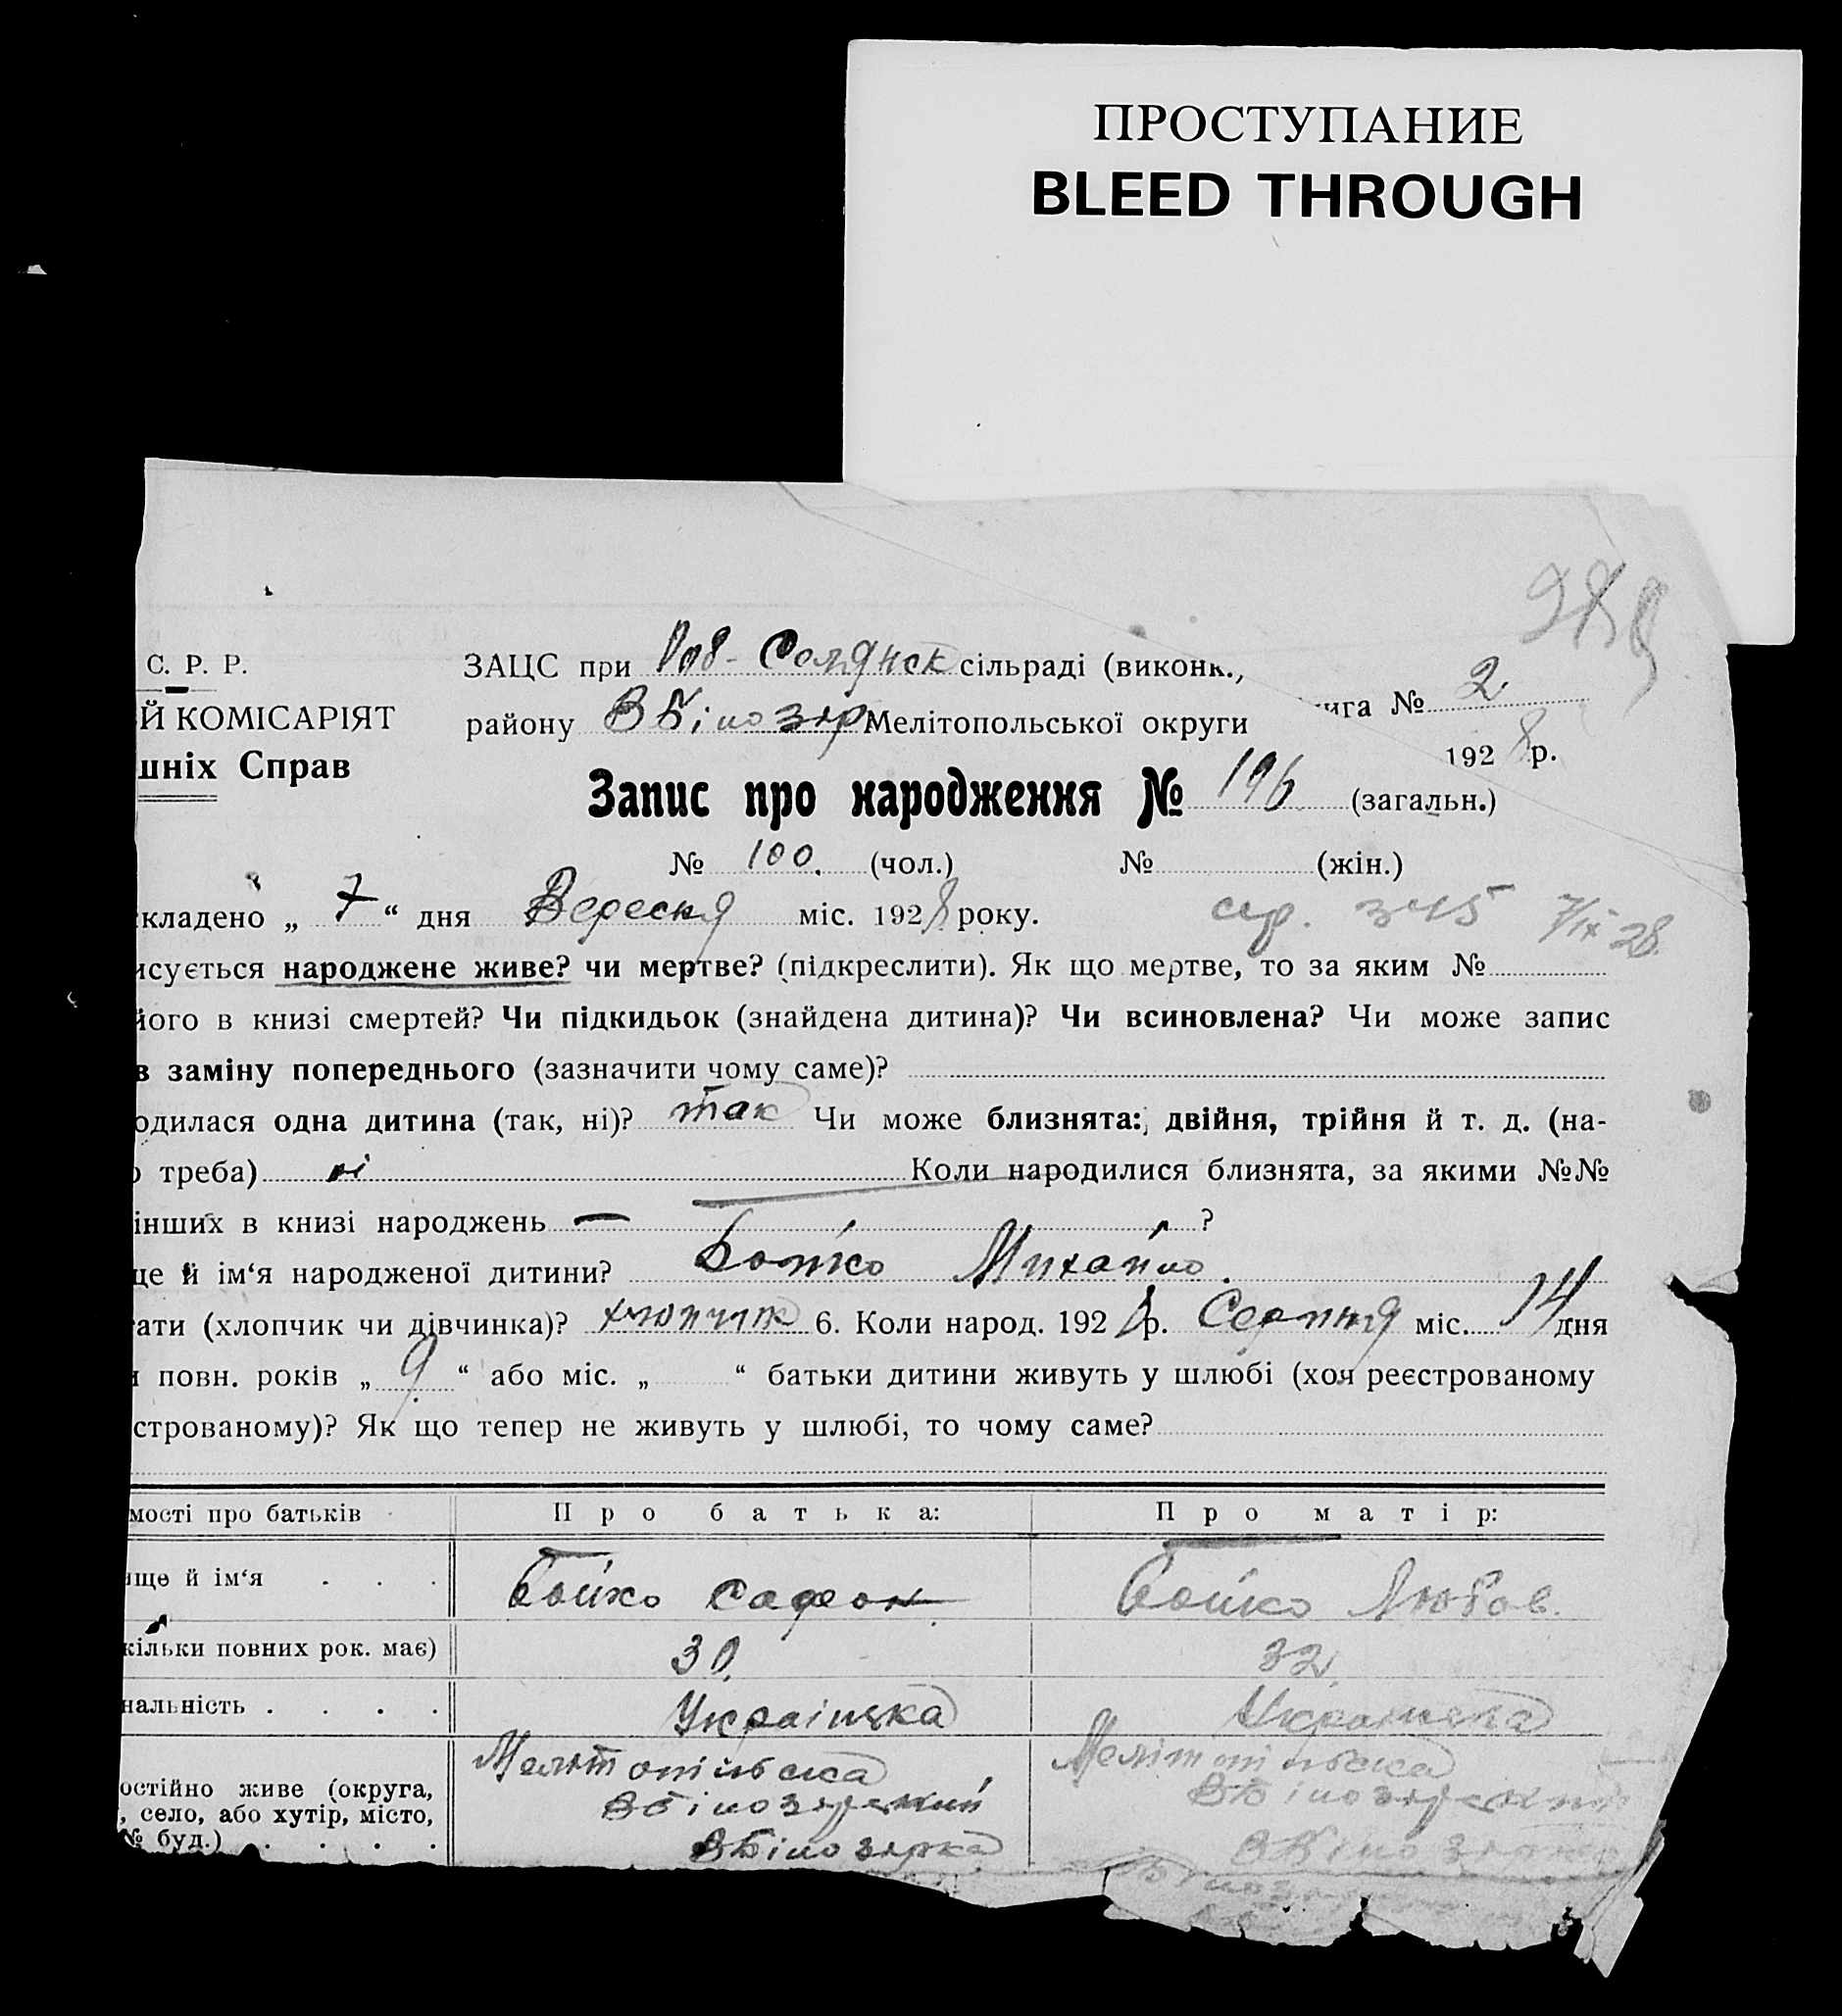 ПРОСТУПАНИЕ
BLEED THROUGH
С. Р. Р.
ЗАЦС при сільраді (виконк.,
Й КОМІСАРІЯТ
району В Білозір Мелітопольської округи
ига № 2
шніх Справ
1928 р.
Запис про народження № 196 (загальн.)
№ 100. (чол.) № (жін.)
кладено „ 7 “ дня Вересня міс. 1928 року.
стр. 345 7/IX 28.
исується народжене живе? чи мертве? (підкреслити). Як що мертве, то за яким №
його в книзі смертей? Чи підкидьок (знайдена дитина)? Чи всиновлена? Чи може запис
в заміну попереднього (зазначити чому саме)?
одилася одна дитина (так, ні)? так Чи може близнята: двійня, трійня й т. д. (на-
о треба) ні Коли народилися близнята, за якими №№
інших в книзі народжень — ?
ще й ім‘я народженої дитини? Бойко Михайло.
тати (хлопчик чи дівчинка)? хлопчик 6. Коли народ. 1928 р. Серпня міс. 14 дня
и повн. років „ 9 “ або міс. „ “ батьки дитини живуть у шлюбі (хоч реєстрованому
строваному)? Як що тепер не живуть у шлюбі, то чому саме?
мості про батьків Про батька: Про матір:
ище й ім‘я . . . Бойко Сафон Бойко Любов.
кільки повних рок. має) 30. 32.
нальність . . . . Українська Українська
Мелітопільська Мелітопільська
остійно живе (округа, ВБілозірський ВБілозірський
, село, або хутір, місто,
№ буд.) . . . . ВБілозірка ВБілозірка